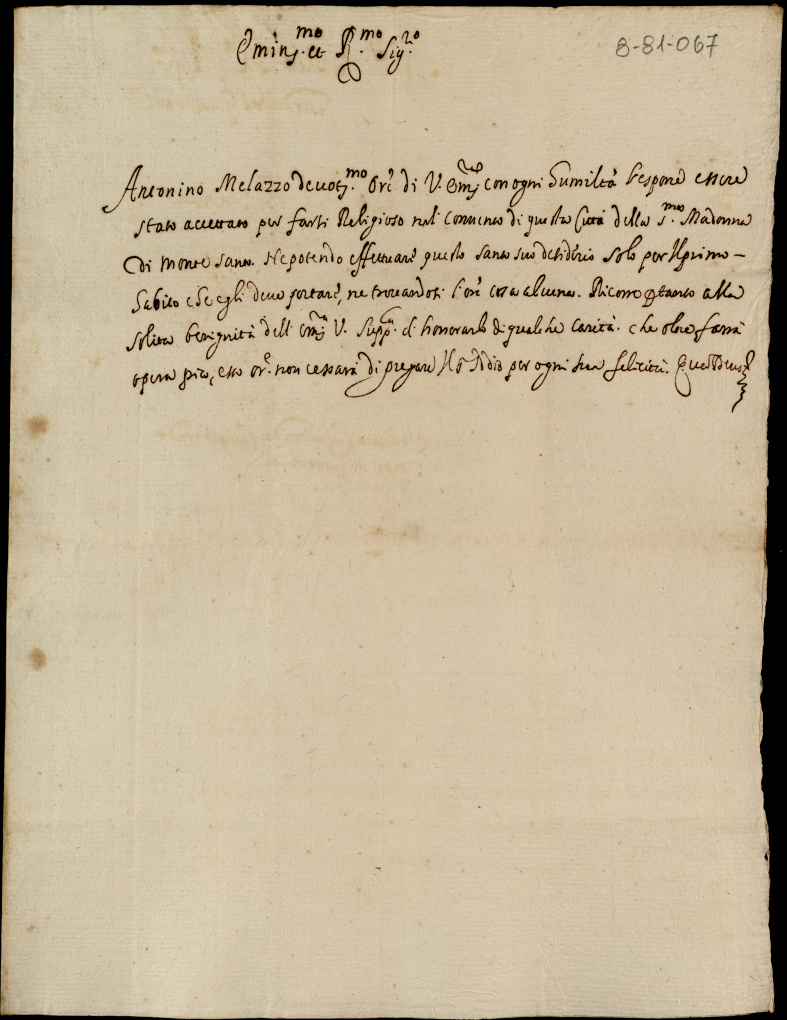 Emin.mo et R.mo Sig.re
8-81-067
Antonino Melazzo devot.mo Ore di V. Em. con ogni humiltà l'espone essere
stato accettato per farsi Religioso nel Convento di questa Città della S.ma Madonna
di Monte Santo. Ne potendo effettuare questo santo suo desiderio solo per il primo
habito che egli deve portare, ne trovandosi l'ore cosa alcuna. Ricorre p tanto alla
solita benignità dell' Em. V. Supp.ca d' honorarlo di qualche carità. che oltre farrà
opera pia, esso or.e non cessarà di pregare Idio per ogni sua felicità. Quam Deus